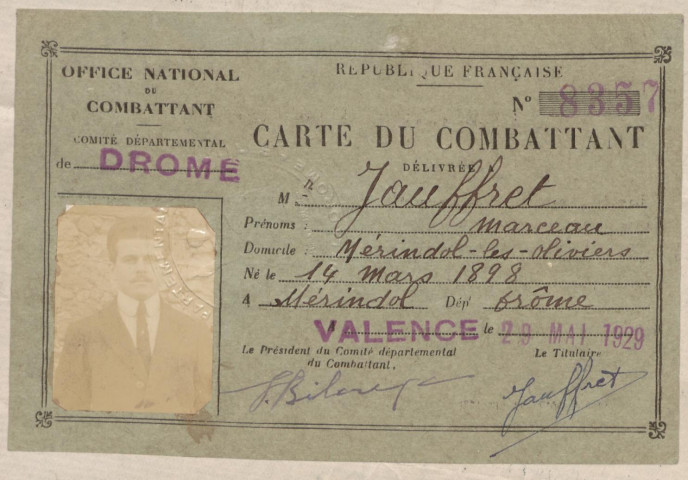 OFFICE NATIONAL
DU
COMBATTANT
COMITÉ DÉPARTEMENTAL
de DROME
RÉPUBLIQUE FRANÇAISE
N° 8357
CARTE DU COMBATTANT
DÉLIVRÉE
M r Jauffret
Prénoms : Marceau
Domicile : Mérindol-les-Oliviers
Né le 14 Mars 1898
A Mérindol Dép t Drôme
A VALENCE le 29 MAI 1929
Le Président du Comité départemental
du Combattant,
Le Titulaire
Jauffret